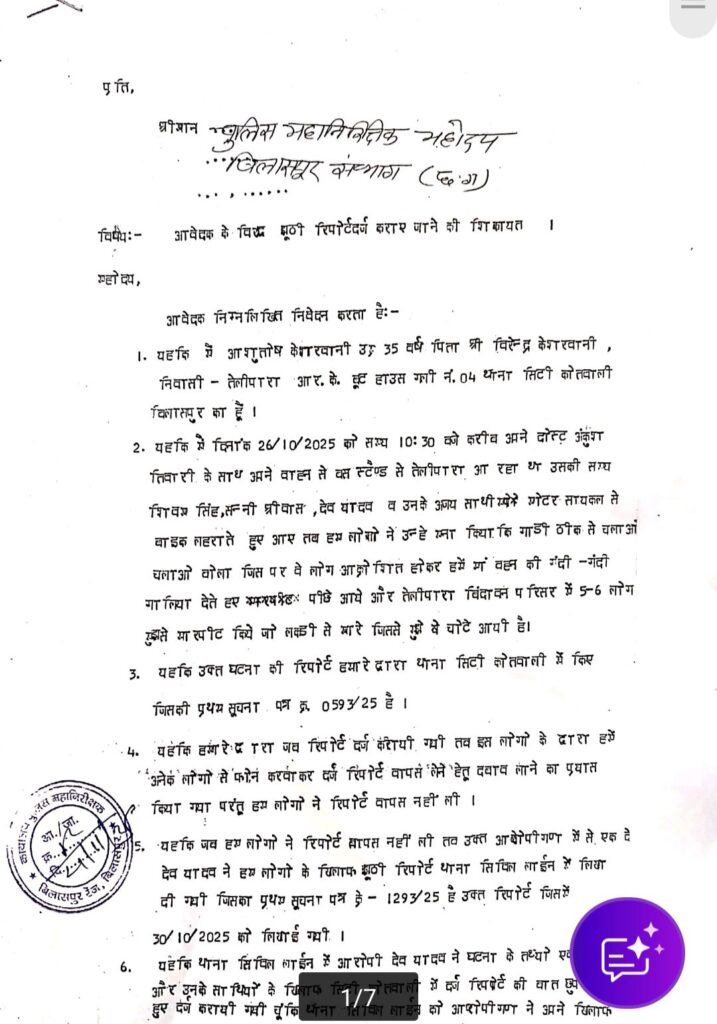 प्रति,
श्रीमान पुलिस महानिरिक्षक महोदय
बिलासपुर संभाग (छ.ग)
विषय:- आवेदक के विरूद्ध झूठी रिपोर्टदर्ज कराए जाने की शिकायत ।
महोदय,
आवेदक निम्नलिखित निवेदन करता है:-
1. यहकि मैं आशुतोष केशरवानी उम्र 35 वर्ष पिता श्री विरेन्द्र केशरवानी ,
निवासी - तेलीपारा आर.के. बूट हाउस गली नं.04 थाना सिटी कोतवाली
बिलासपुर का हूँ ।
2. यहकि मैं दिनांक 26/10/2025 को समय 10:30 बजे करीब अपने दोस्ट अंकुश
तिवारी के साथ अपने वाहन से बस स्टैण्ड से तेलीपारा आ रहा था उसकी समय
शिवम सिंह,सन्नी श्रीवास ,देव यादव व उनके अन्य साथी मोटर सायकल से
बाइक लहराते हुए आए तब हम लोगो ने उन्हे मना किया कि गाडी ठीक से चलाओं
चलाओ बोला जिस पर वे लोग आक्रोशित होकर हमें मां बहन की गंदी -गंदी
गालिया देते हुए पीछे आये और तेलीपारा बिंदावन परिसर में 5-6 लोग
मुझसे मारपीट किये जो लकडी से मारे जिससे मुझे ये चोटे आयी है।
3. यहकि उक्त घटना की रिपोर्ट हमारे द्वारा थाना सिटी कोतवाली में किए
जिसकी प्रथम सूचना पत्र क्र. 0593/25 है ।
4. यहकि हमारे द्वारा जब रिपोर्ट दर्ज करायी गयी तब इस लोगो के द्वारा हमें
अनेक लोगों से फोन करवाकर दर्ज रिपोर्ट वापस लेने हेतू दबाव लाने का प्रयास
किया गया परंतू हम लोगो ने रिपोर्ट वापस नहीं ली ।
5. यहकि जब हम लोगो ने रिपोर्ट वापस नहीं ली तब उक्त आरोपीगण में से एक दे
देव यादव ने हम लोगो के खिलाफ झूठी रिपोर्ट थाना सिविल लाईन में लिखा
दी गयी जिसका प्रथम सूचना पत्र क्रं - 1293/25 है उक्त रिपोर्ट जिसमें
30/10/2025 को लिखाई गयी ।
6. यहकि थाना सिविल लाईन में आरोपी देव यादव ने घटना के तथ्यो
और उनके साथियों के खिलाफ सिटी कोतवाली में दर्ज रिपोर्ट की बात
हुए दर्ज करायी गयी चूंकि थाना सिविल लाईन को आरोपीगण ने अपने खिलाफ
कार्यालय पुलिस महानिरीक्षक
बिलासपुर रेंज, बिलासपुर
आ./जा.
क्र.
दि.
1/7